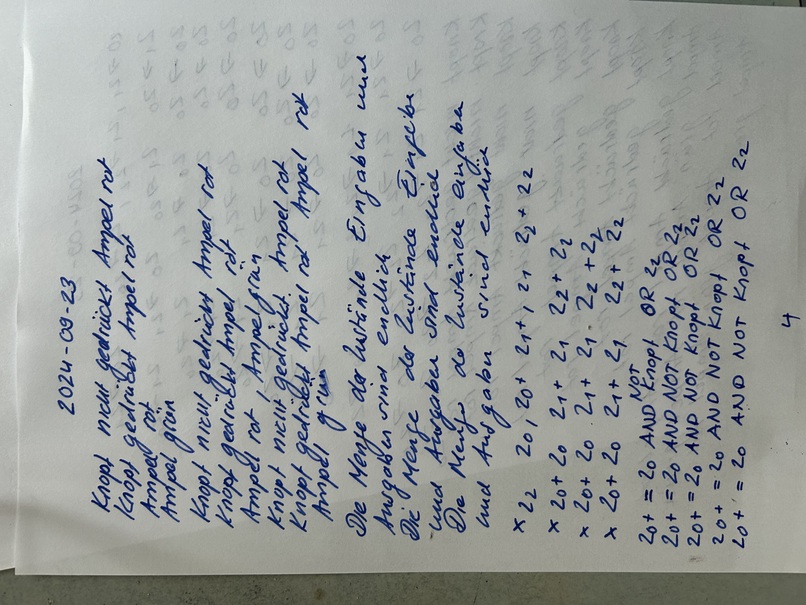 2024-09-23
Knopf nicht gedrückt Ampel rot
Knopf gedrückt Ampel rot
Ampel rot
Ampel grün
Knopf nicht gedrückt Ampel rot
Knopf gedrückt Ampel rot
Ampel rot, Ampel grün
Knopf nicht gedrückt Ampel rot
Knopf gedrückt Ampel rot Ampel rot
Ampel grün
Die Menge der Zustände Eingaben und
Ausgaben sind endlich
Die Menge der Zustände Eingabe
und Ausgaben sind endlich
Die Menge der Zustände eingaben
und Ausgaben sind endlich
x z2 z0, z0+ z1+, z1 z2 + z2
x z0+ z0 z1+ z1 z2+ z2
x z0+ z0 z1+ z1 z2+z2
x z0+ z0 z1+ z1 z2+ z2
z0+ = z0 AND NOT Knopf OR z2
z0+ = z0 AND NOT Knopf OR z2
z0+ = z0 AND NOT Knopf OR z2
z0+ = z0 AND NOT Knopf OR z2
z0+ = z0 AND NOT Knopf OR z2
4